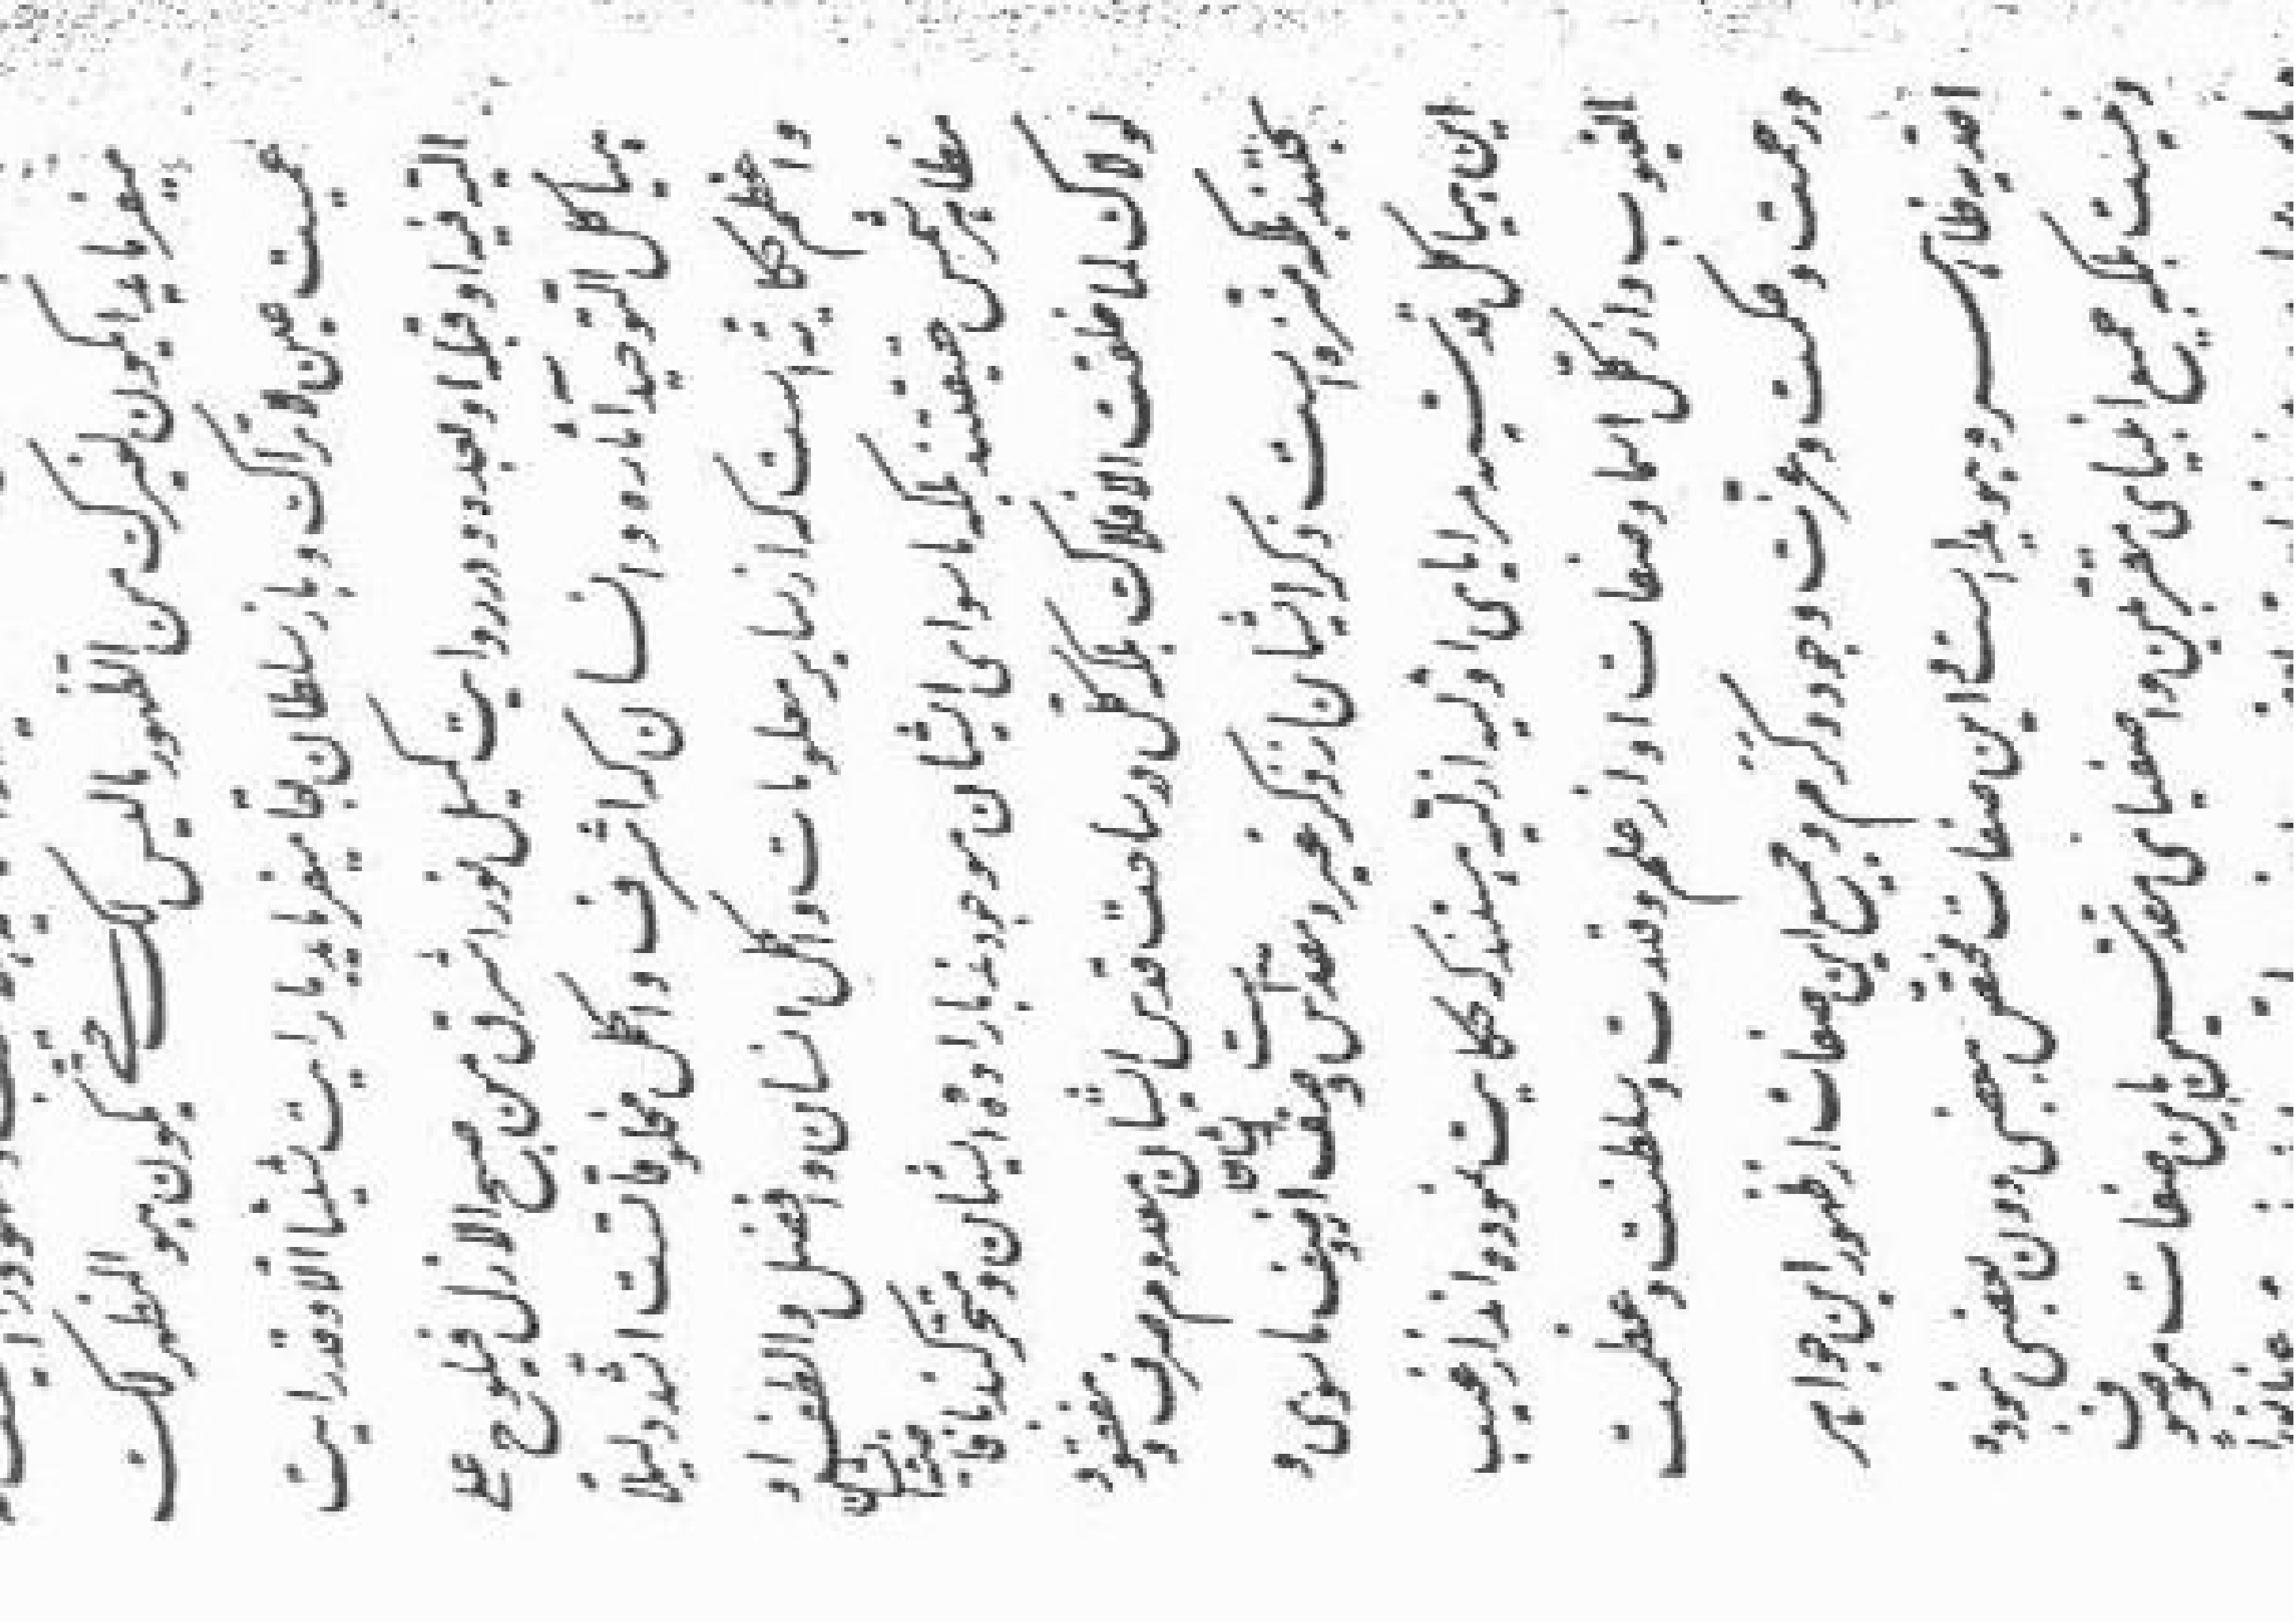 میفرماید ایکون لغیرک من الظهور ما لیس لک حتی یکون هو المظهر لک
عمیت عین لا تراک و باز سلطان بقا میفرماید ما رایت شیئا الا و قد رایت
الله فیه او قبله او بعده و در روایت کمیل نور اشرق من صبح الازل فیلوح علی
هیاکل التوحید آثاره و انسان که اشرف و اکمل مخلوقاتست اشد دلالة
و اعظم حکایة است از سایر معلومات و اکمل انسان و افضل و الطف او
مظاهر شمس حقیقتند بلکه ماسوای ایشان موجودند باراده ایشان و متحرکند بافاضه ایشان
لولاک لما خلقت الافلاک بلکه کل در ساحت قدس ایشان معدوم صرف و مفقود
بحتند بلکه منزه است ذکر ایشان از ذکر غیر و مقدس است وصف ایشان از وصف ماسوی و
این هیاکل قدسیه مرایای اولیه ازلیه هستند که حکایت نموده‌اند از غیب
الغیوب و از کل اسما و صفات او از علم و قدرت و سلطنت و عظمت
و رحمت و حکمت و عزت و جود و کرم و جمیع این صفات از ظهور این جواهر
احدیه ظاهر و هویدا است و این صفات مختص ببعضی دون بعضی نبوده
و نیست بلکه جمیع انبیای مقربین و اصفیای مقدسین باین صفات موصوف